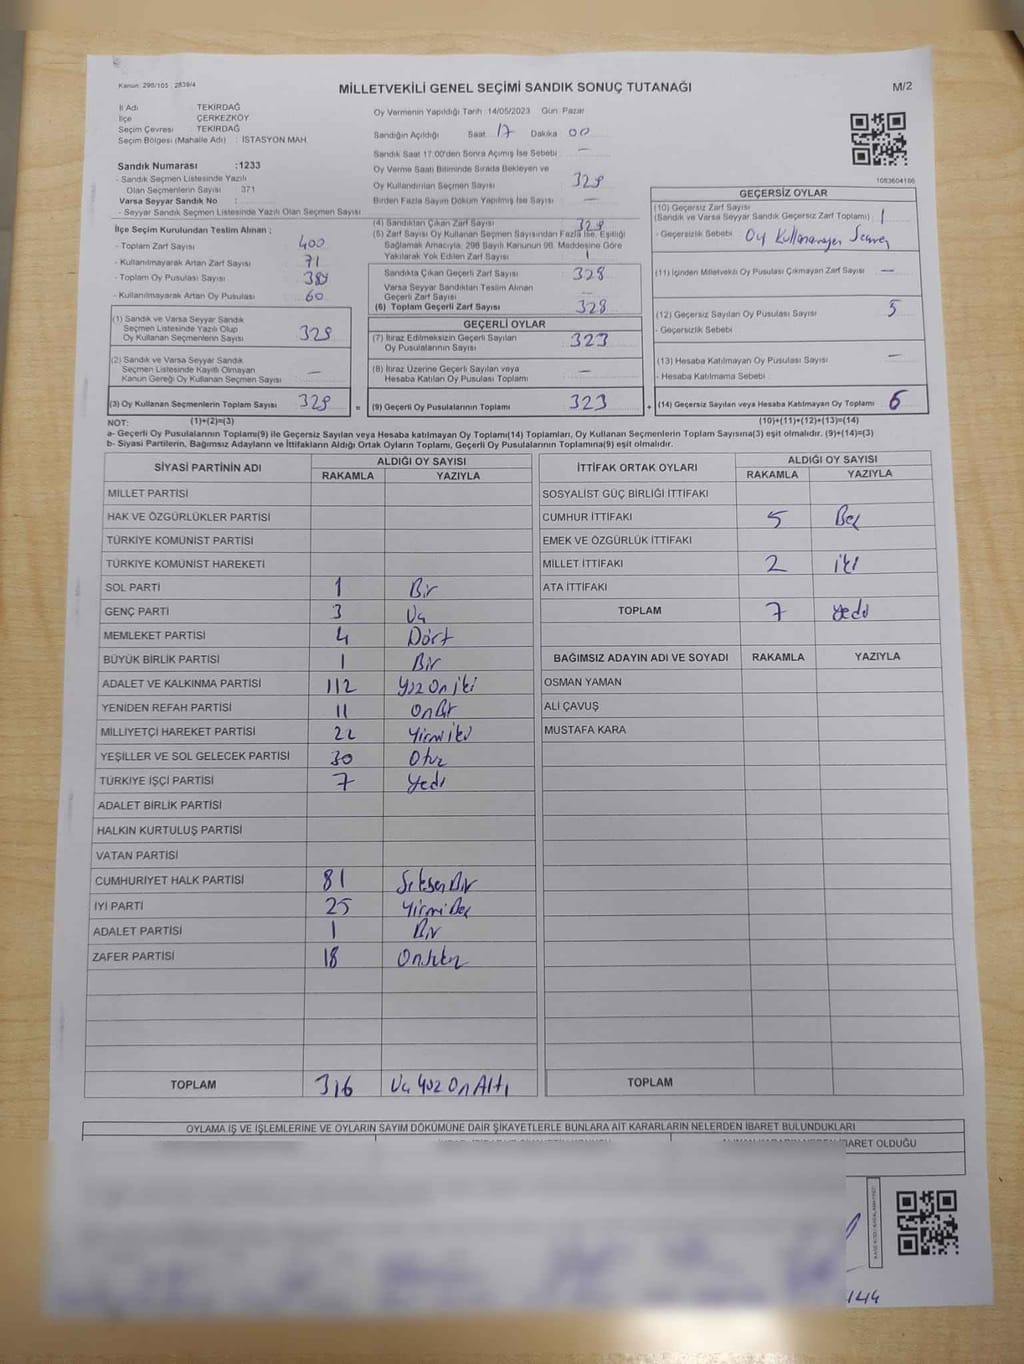 Kanun: 298/105 , 2839/4
MİLLETVEKİLİ GENEL SEÇİMİ SANDIK SONUÇ TUTANAĞI
M/2
İl Adı TEKİRDAĞ
İlçe ÇERKEZKÖY
Seçim Çevresi TEKİRDAĞ
Seçim Bölgesi (Mahalle Adı) : İSTASYON MAH.
Sandık Numarası :1233
- Sandık Seçmen Listesinde Yazılı
Olan Seçmenlerin Sayısı 371
Varsa Seyyar Sandık No :
- Seyyar Sandık Seçmen Listesinde Yazılı Olan Seçmen Sayısı
İlçe Seçim Kurulundan Teslim Alınan ;
- Toplam Zarf Sayısı 400
- Kullanılmayarak Artan Zarf Sayısı 71
- Toplam Oy Pusulası Sayısı
- Kullanılmayarak Artan Oy Pusulası 60
(1) Sandık ve Varsa Seyyar Sandık
Seçmen Listesinde Yazılı Olup
Oy Kullanan Seçmenlerin Sayısı 329
(2) Sandık ve Varsa Seyyar Sandık
Seçmen Listesinde Kayıtlı Olmayan
Kanun Gereği Oy Kullanan Seçmen Sayısı —
(3) Oy Kullanan Seçmenlerin Toplam Sayısı 329 =
Oy Vermenin Yapıldığı Tarih :14/05/2023 Gün: Pazar
Sandığın Açıldığı Saat 17 Dakika 00
Sandık Saat 17:00'den Sonra Açılmış İse Sebebi —
Oy Verme Saati Bitiminde Sırada Bekleyen ve
Oy Kullandırılan Seçmen Sayısı 329
Birden Fazla Sayım Döküm Yapılmış İse Sayısı —
(4) Sandıktan Çıkan Zarf Sayısı 329
(5) Zarf Sayısı Oy Kullanan Seçmen Sayısından Fazla İse, Eşitliği
Sağlamak Amacıyla, 298 Sayılı Kanunun 98. Maddesine Göre
Yakılarak Yok Edilen Zarf Sayısı
Sandıkta Çıkan Geçerli Zarf Sayısı 328
Varsa Seyyar Sandıktan Teslim Alınan
Geçerli Zarf Sayısı —
(6) Toplam Geçerli Zarf Sayısı 328
GEÇERLİ OYLAR
(7) İtiraz Edilmeksizin Geçerli Sayılan
Oy Pusulalarının Sayısı 323
(8) İtiraz Üzerine Geçerli Sayılan veya
Hesaba Katılan Oy Pusulası Toplamı —
(9) Geçerli Oy Pusulalarının Toplamı 323 +
1083604186
GEÇERSİZ OYLAR
(10) Geçersiz Zarf Sayısı
(Sandık ve Varsa Seyyar Sandık Geçersiz Zarf Toplamı) 1
- Geçersizlik Sebebi : Oy Kullanmayan Seçmen
(11) İçinden Milletvekili Oy Pusulası Çıkmayan Zarf Sayısı —
(12) Geçersiz Sayılan Oy Pusulası Sayısı 5
- Geçersizlik Sebebi
(13) Hesaba Katılmayan Oy Pusulası Sayısı —
- Hesaba Katılmama Sebebi :
(14) Geçersiz Sayılan veya Hesaba Katılmayan Oy Toplamı 6
NOT: (1)+(2)=(3) (10)+(11)+(12)+(13)=(14)
a- Geçerli Oy Pusulalarının Toplamı(9) ile Geçersiz Sayılan veya Hesaba katılmayan Oy Toplamı(14) Toplamları, Oy Kullanan Seçmenlerin Toplam Sayısına(3) eşit olmalıdır. (9)+(14)=(3)
b- Siyasi Partilerin, Bağımsız Adayların ve İttifakların Aldığı Ortak Oyların Toplamı, Geçerli Oy Pusulalarının Toplamına(9) eşit olmalıdır.
SİYASİ PARTİNİN ADI ALDIĞI OY SAYISI
RAKAMLA YAZIYLA
MİLLET PARTİSİ
HAK VE ÖZGÜRLÜKLER PARTİSİ
TÜRKİYE KOMÜNİST PARTİSİ
TÜRKİYE KOMÜNİST HAREKETİ
SOL PARTİ 1 Bir
GENÇ PARTİ 3 Üç
MEMLEKET PARTİSİ 4 Dört
BÜYÜK BİRLİK PARTİSİ 1 Bir
ADALET VE KALKINMA PARTİSİ 112 Yüz On iki
YENİDEN REFAH PARTİSİ 11 OnBir
MİLLİYETÇİ HAREKET PARTİSİ 22 Yirmi iki
YEŞİLLER VE SOL GELECEK PARTİSİ 30 Otuz
TÜRKİYE İŞÇİ PARTİSİ 7 Yedi
ADALET BİRLİK PARTİSİ
HALKIN KURTULUŞ PARTİSİ
VATAN PARTİSİ
CUMHURİYET HALK PARTİSİ 81 SeksenBir
İYİ PARTİ 25 YirmiBeş
ADALET PARTİSİ 1 Bir
ZAFER PARTİSİ 18 OnSekiz
TOPLAM 316 Üç Yüz On Altı
İTTİFAK ORTAK OYLARI ALDIĞI OY SAYISI
RAKAMLA YAZIYLA
SOSYALİST GÜÇ BİRLİĞİ İTTİFAKI
CUMHUR İTTİFAKI 5 Beş
EMEK VE ÖZGÜRLÜK İTTİFAKI
MİLLET İTTİFAKI 2 iki
ATA İTTİFAKI
TOPLAM 7 Yedi
BAĞIMSIZ ADAYIN ADI VE SOYADI RAKAMLA YAZIYLA
OSMAN YAMAN
ALİ ÇAVUŞ
MUSTAFA KARA
TOPLAM
OYLAMA İŞ VE İŞLEMLERİNE VE OYLARIN SAYIM DÖKÜMÜNE DAİR ŞİKAYETLERLE BUNLARA AİT KARARLARIN NELERDEN İBARET BULUNDUKLARI
İBARET OLDUĞU